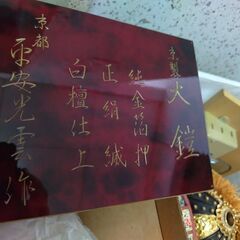 京製大鎧
純金箔押
正絹縅
白檀仕上
京都
平安光雲作